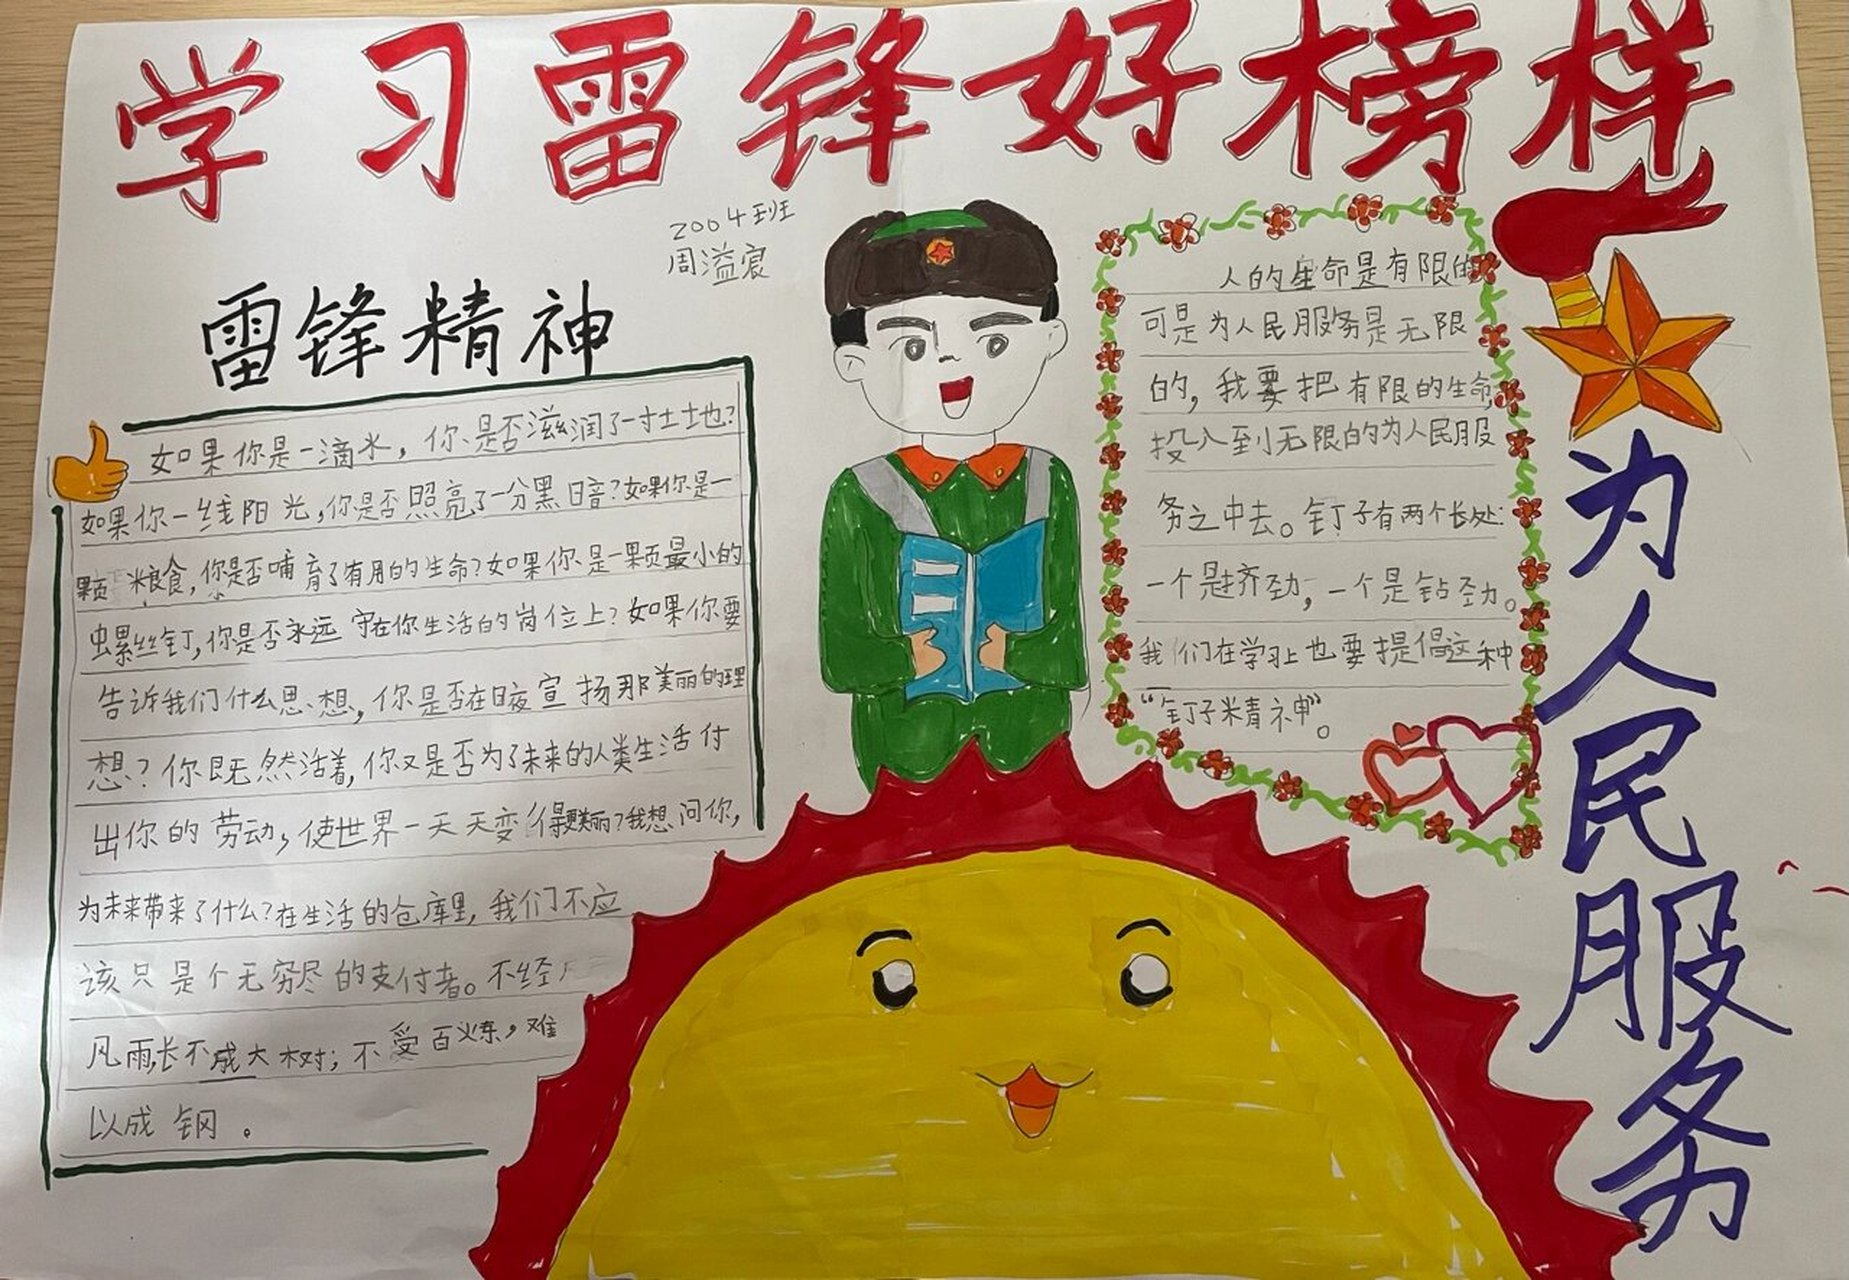 学习雷锋好榜样
2004班
周溢宸
雷锋精神
如果你是一滴水，你是否滋润了一寸土地？
如果你一线阳光，你是否照亮了一分黑暗？如果你是一
颗粮食，你是否哺育了有用的生命？如果你是一颗最小的
螺丝钉，你是否永远守在你生活的岗位上？如果你要
告诉我们什么思想，你是否在日夜宣扬那美丽的理
想？你既然活着，你又是否为了未来的人类生活付
出你的劳动，使世界一天天变得更美丽？我想问你，
为未来带来了什么？在生活的仓库里，我们不应
该只是个无穷尽的支付者。不经
风雨，长不成大树；不受百炼，难
以成钢。
人的生命是有限的
可是为人民服务是无限
的，我要把有限的生命，
投入到无限的为人民服
务之中去。钉子有两个长处：
一个是挤劲，一个是钻劲。
我们在学习上也要提倡这种
“钉子精神”。
为人民服务